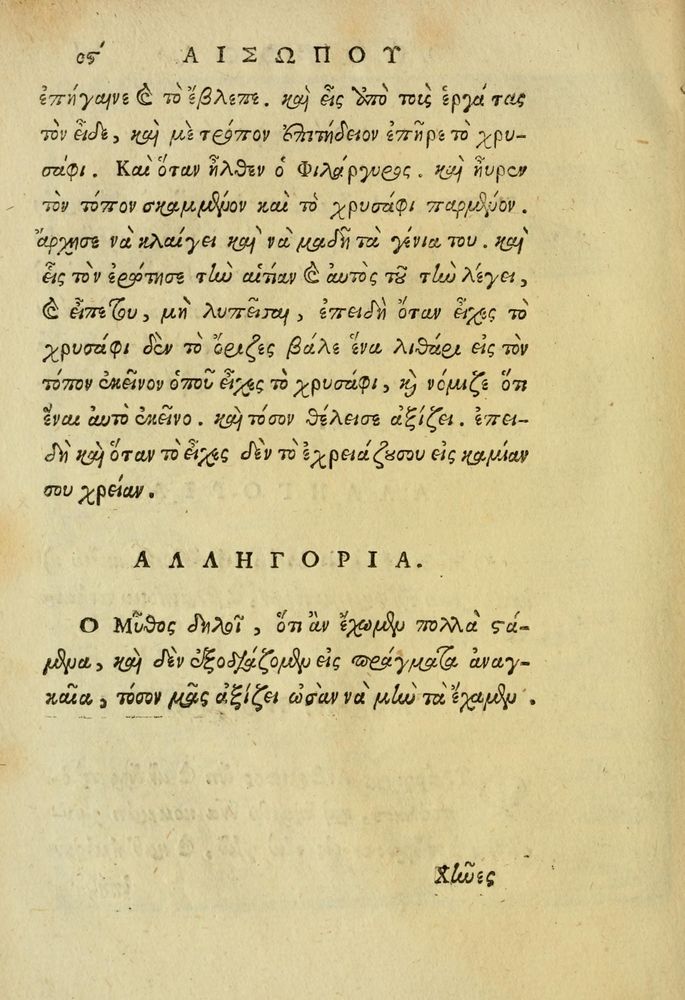 οϛ΄ ΑΙΣΩΠΟΥ
ἐπήγαινε καὶ τὸ ἔβλεπε. καὶ εἷς ἀπὸ τοὺς ἐργάτας
τὸν εἶδε, καὶ μὲ τρόπον ἐπιτήδειον ἐπῆρε τὸ χρυ-
σάφι. Καὶ ὅταν ἦλθεν ὁ Φιλάργυρος. καὶ ηὗρεν
τὸν τόπον σκαμμένον καὶ τὸ χρυσάφι παρμένον.
ἄρχησε νὰ κλαίγει καὶ νὰ μαδῆ τὰ γένιατου. καὶ
εἷς τὸν ἐρώτησε τὴν αἰτίαν καὶ αὐτὸς τοῦ τὴν λέγει,
καὶ εἶπέτου, μὴ λυπεῖσαι, ἐπειδὴ ὅταν εἶχες τὸ
χρυσάφι δὲν τὸ ὅριζες βάλε ἕνα λιθάρι εἰς τὸν
τόπον ἐκεῖνον ὁποῦ εἶχες τὸ χρυσάφι, καὶ νόμιζε ὅτι
ἔναι αὐτὸ ἐκεῖνο. καὶ τόσον θέλεισε ἀξίζει. ἐπει-
δὴ καὶ ὅταν τὸ εἶχες δὲν τὸ ἐχρειάζουσου εἰς καμίαν
σου χρείαν.
ΑΛΛΗΓΟΡΙΑ.
Ο Μῦθος δηλοῖ, ὅτι ἂν ἔχωμεν πολλὰ στά-
μενα, καὶ δὲν ἐξοδιάζομεν εἰς πράγματα ἀναγ-
καῖα, τόσον μᾶς ἀξίζει ὡσὰν νὰ μὴν τὰ ἔχαμεν.
Χῆνες